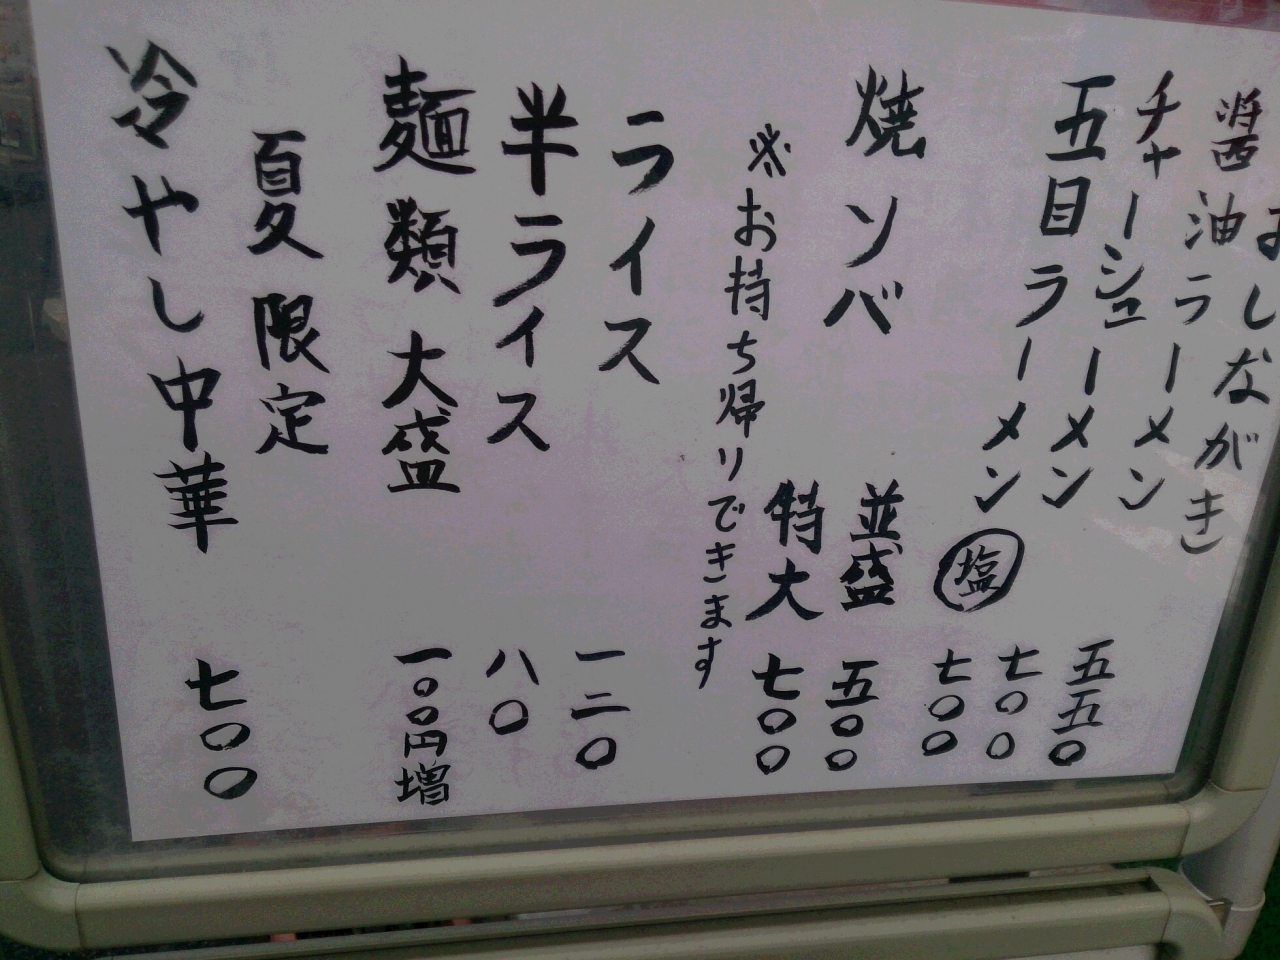 おしながき
醤油ラーメン 五五〇
チャーシューメン 七〇〇
五目ラーメン 塩 七〇〇
焼ソバ 並盛 五〇〇
特大 七〇〇
※お持ち帰りできます
ライス 一二〇
半ライス 八〇
麺類大盛 一〇〇円増
夏限定
冷やし中華 七〇〇